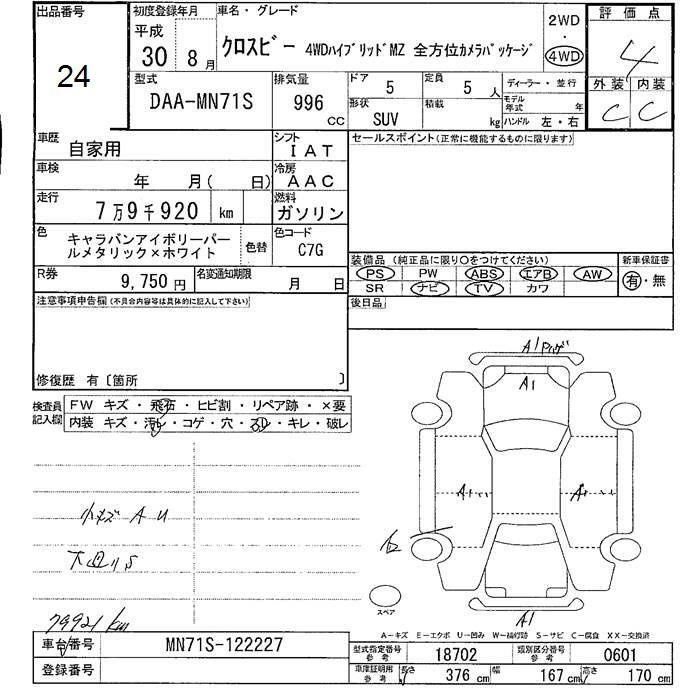 出品番号
24
初度登録年月
平成
30 8月
車名・グレード
クロスビー 4WDハイブリッドMZ 全方位カメラパッケージ
2WD
・
4WD
評価点
4
外装 内装
C C
型式
DAA-MN71S
排気量
996
CC
ドア
5
定員
5 人
形状
SUV
積載
kg
ディーラー・並行
モデル年式 年
ハンドル 左・右
車歴
自家用
シフト
IAT
車検
年 月( 日)
冷房
AAC
走行
7万9千920 km
燃料
ガソリン
色
キャラバンアイボリーパー
ルメタリック×ホワイト
色替
色コード
C7G
R券
9,750円
名変通知期限
月 日
セールスポイント(正常に機能するものに限ります)
装備品(純正品に限り○をつけてください)
PS PW ABS エアB AW
SR ナビ TV カワ
新車保証書
有・無
後日品
注意事項申告欄(不具合内容等は具体的に記入して下さい)
修復歴 有〔箇所 〕
検査員
記入欄
FW キズ・飛石・ヒビ割・リペア跡・×要
内装 キズ・汚レ・コゲ・穴・スレ・キレ・破レ
小キズ A U
下回りS
79921 km
A1
A1
A1
A1
A1
スペア
A-キズ E-エクボ U-凹み W-補修跡 S-サビ C-腐食 XX-交換済
車台番号
MN71S-122227
登録番号
型式指定番号
参考
18702
類別区分番号
参考
0601
車庫証明用
参考
長さ 376 cm 幅 167 cm 高さ 170 cm